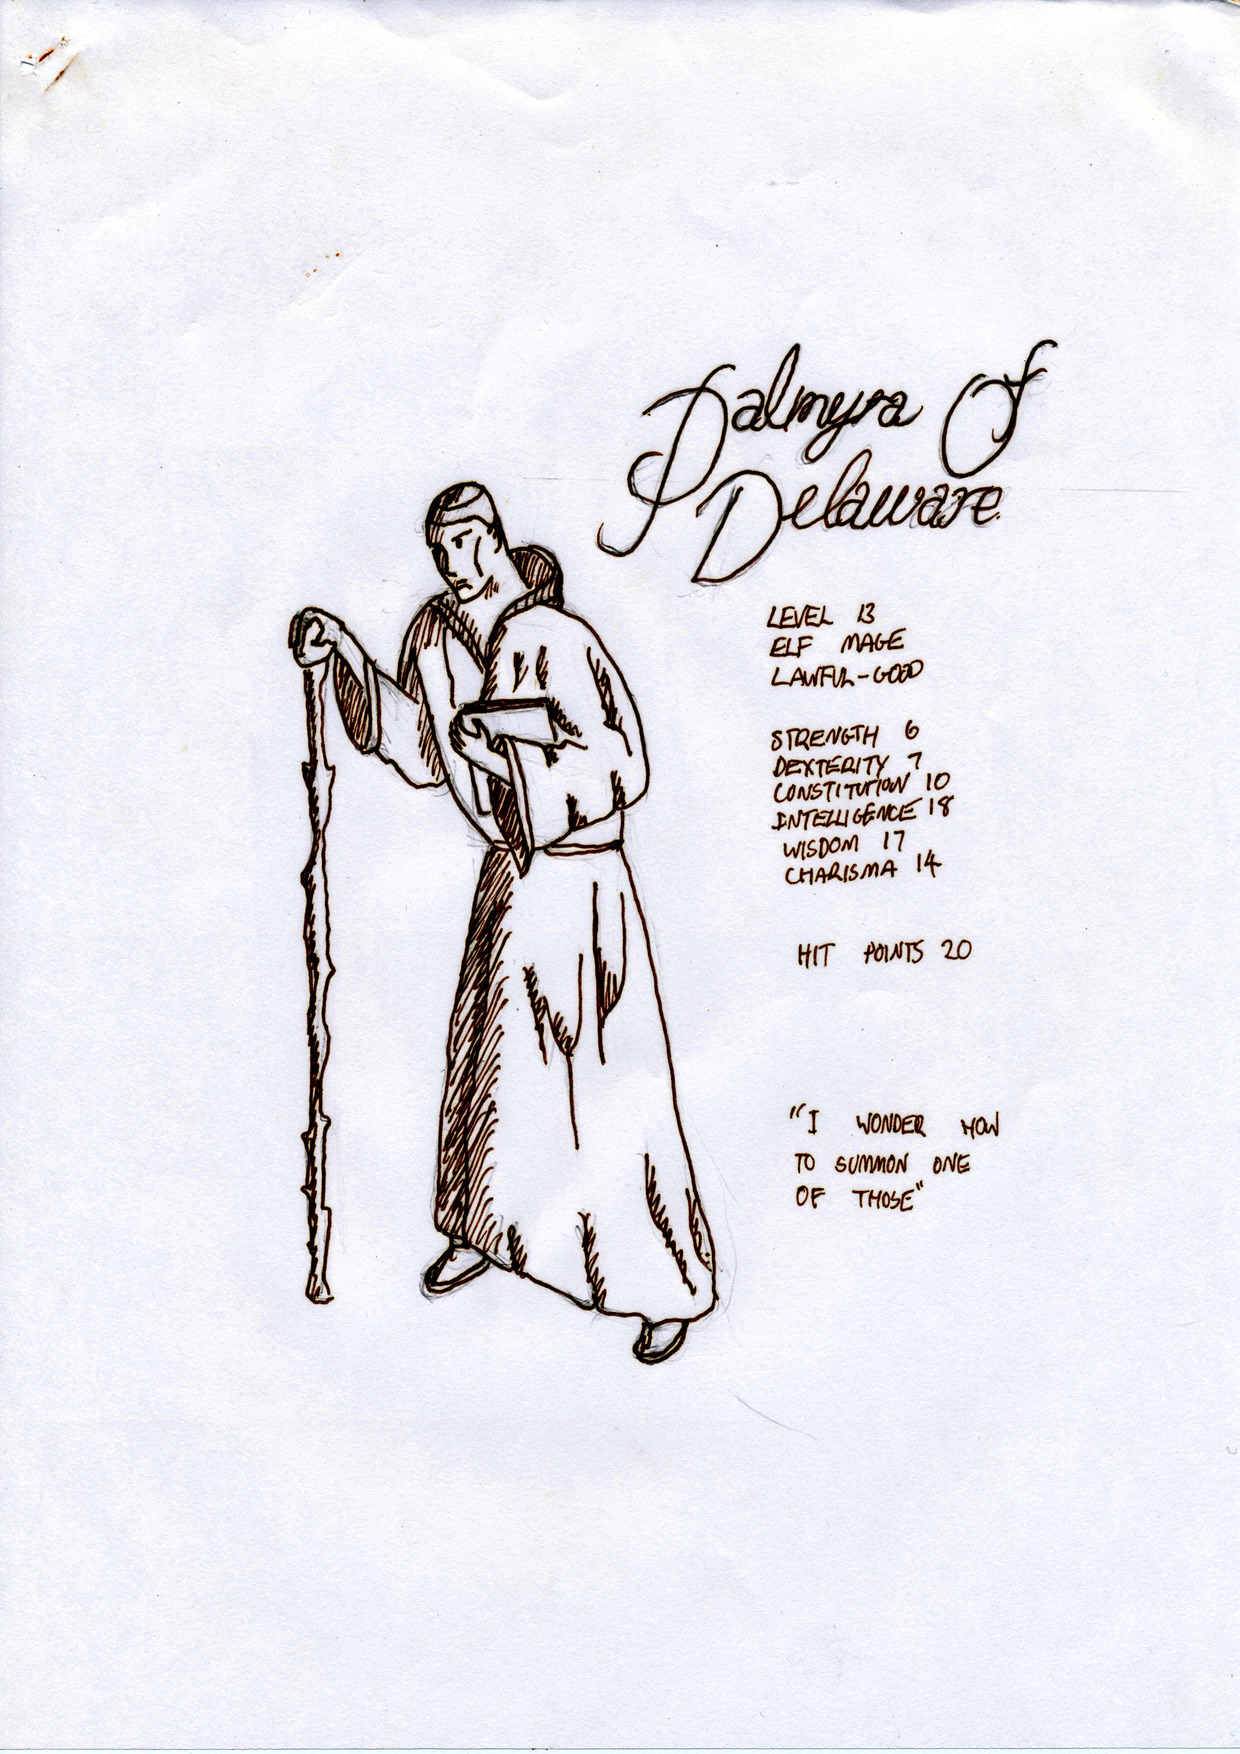 Palmyra Of
Delaware.
LEVEL 13
ELF MAGE
LAWFUL-GOOD
STRENGTH 6
DEXTERITY 7
CONSTITUTION 10
INTELLIGENCE 18
WISDOM 17
CHARISMA 14
HIT POINTS 20
"I WONDER HOW
TO SUMMON ONE
OF THOSE"